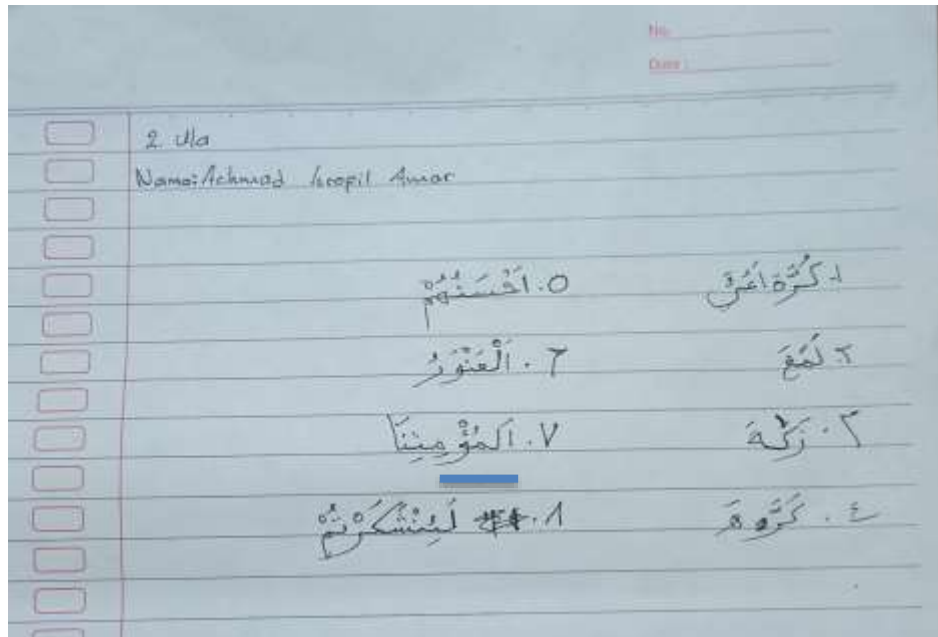 No.
Date :
2. Ula
Nama: Achmad Amar
١. كُرَّةَ اَعْيُ
٢. لُمَعَ
٣. زَكَةَ
٤. كَرَّوهَ
٥. اَحْسَنُهُمْ
٦. اَلْعَنْوَرُ
٧. اَلمُؤْمِنِنَا
٨. لَئِنْشَكَرْتُمْ